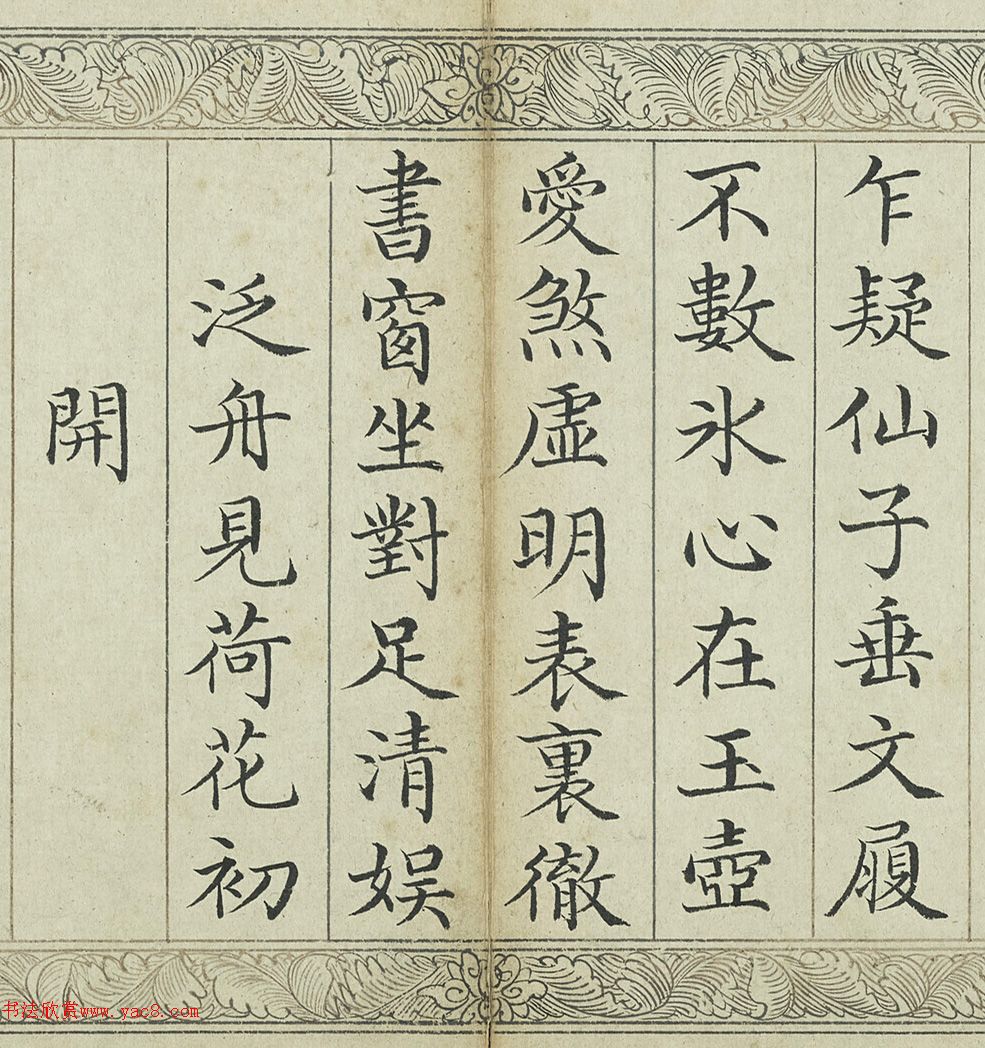 乍疑仙子垂文履
不數氷心在玉壺
愛煞虛明表裏徹
書窗坐對足清娛
泛舟見荷花初
開
书法欣赏www.yac8.com